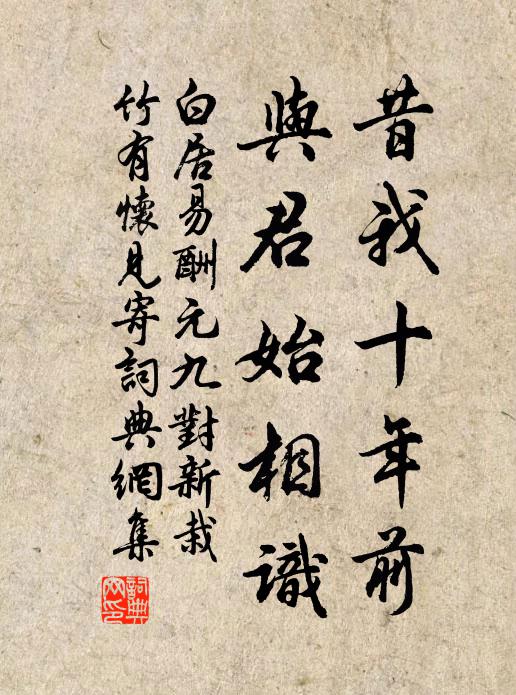 昔我十年前
與君始相識
白居易酬元九對新栽
竹有懷見寄詞典網集
詞典
網印